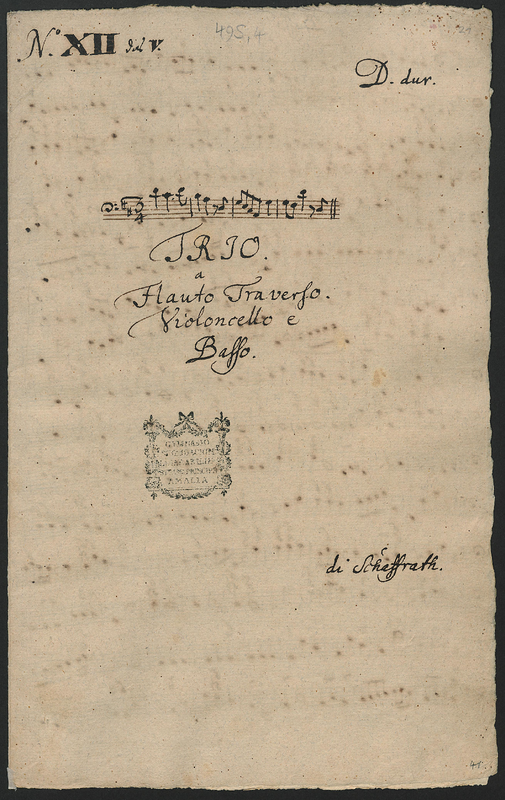 N.º XII
495,4
D. dur.
TRIO.
a
Flauto Traverso.
Violoncello e
Basso.
AMALIA
di Schaffrath.
41